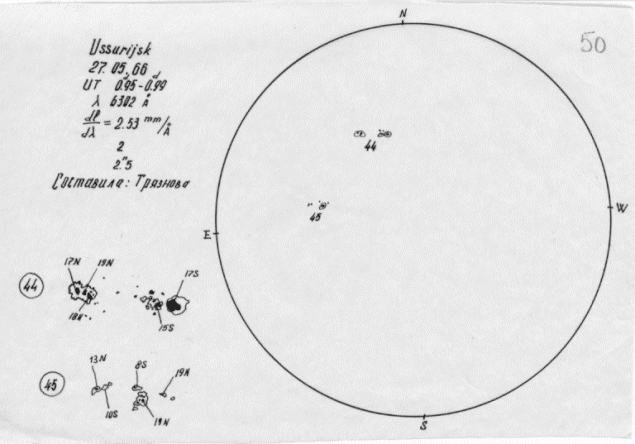 50
Ussurijsk
27.05.66
UT 0.ᵈ95-0.ᵈ99
λ 6302 Å
dl/dλ = 2.53 mm/Å
2
2."5
Составила: Грязнова
N
44
45
E
W
S
44
17N
19N
18N
17S
15S
45
13N
10S
8S
19N
19N